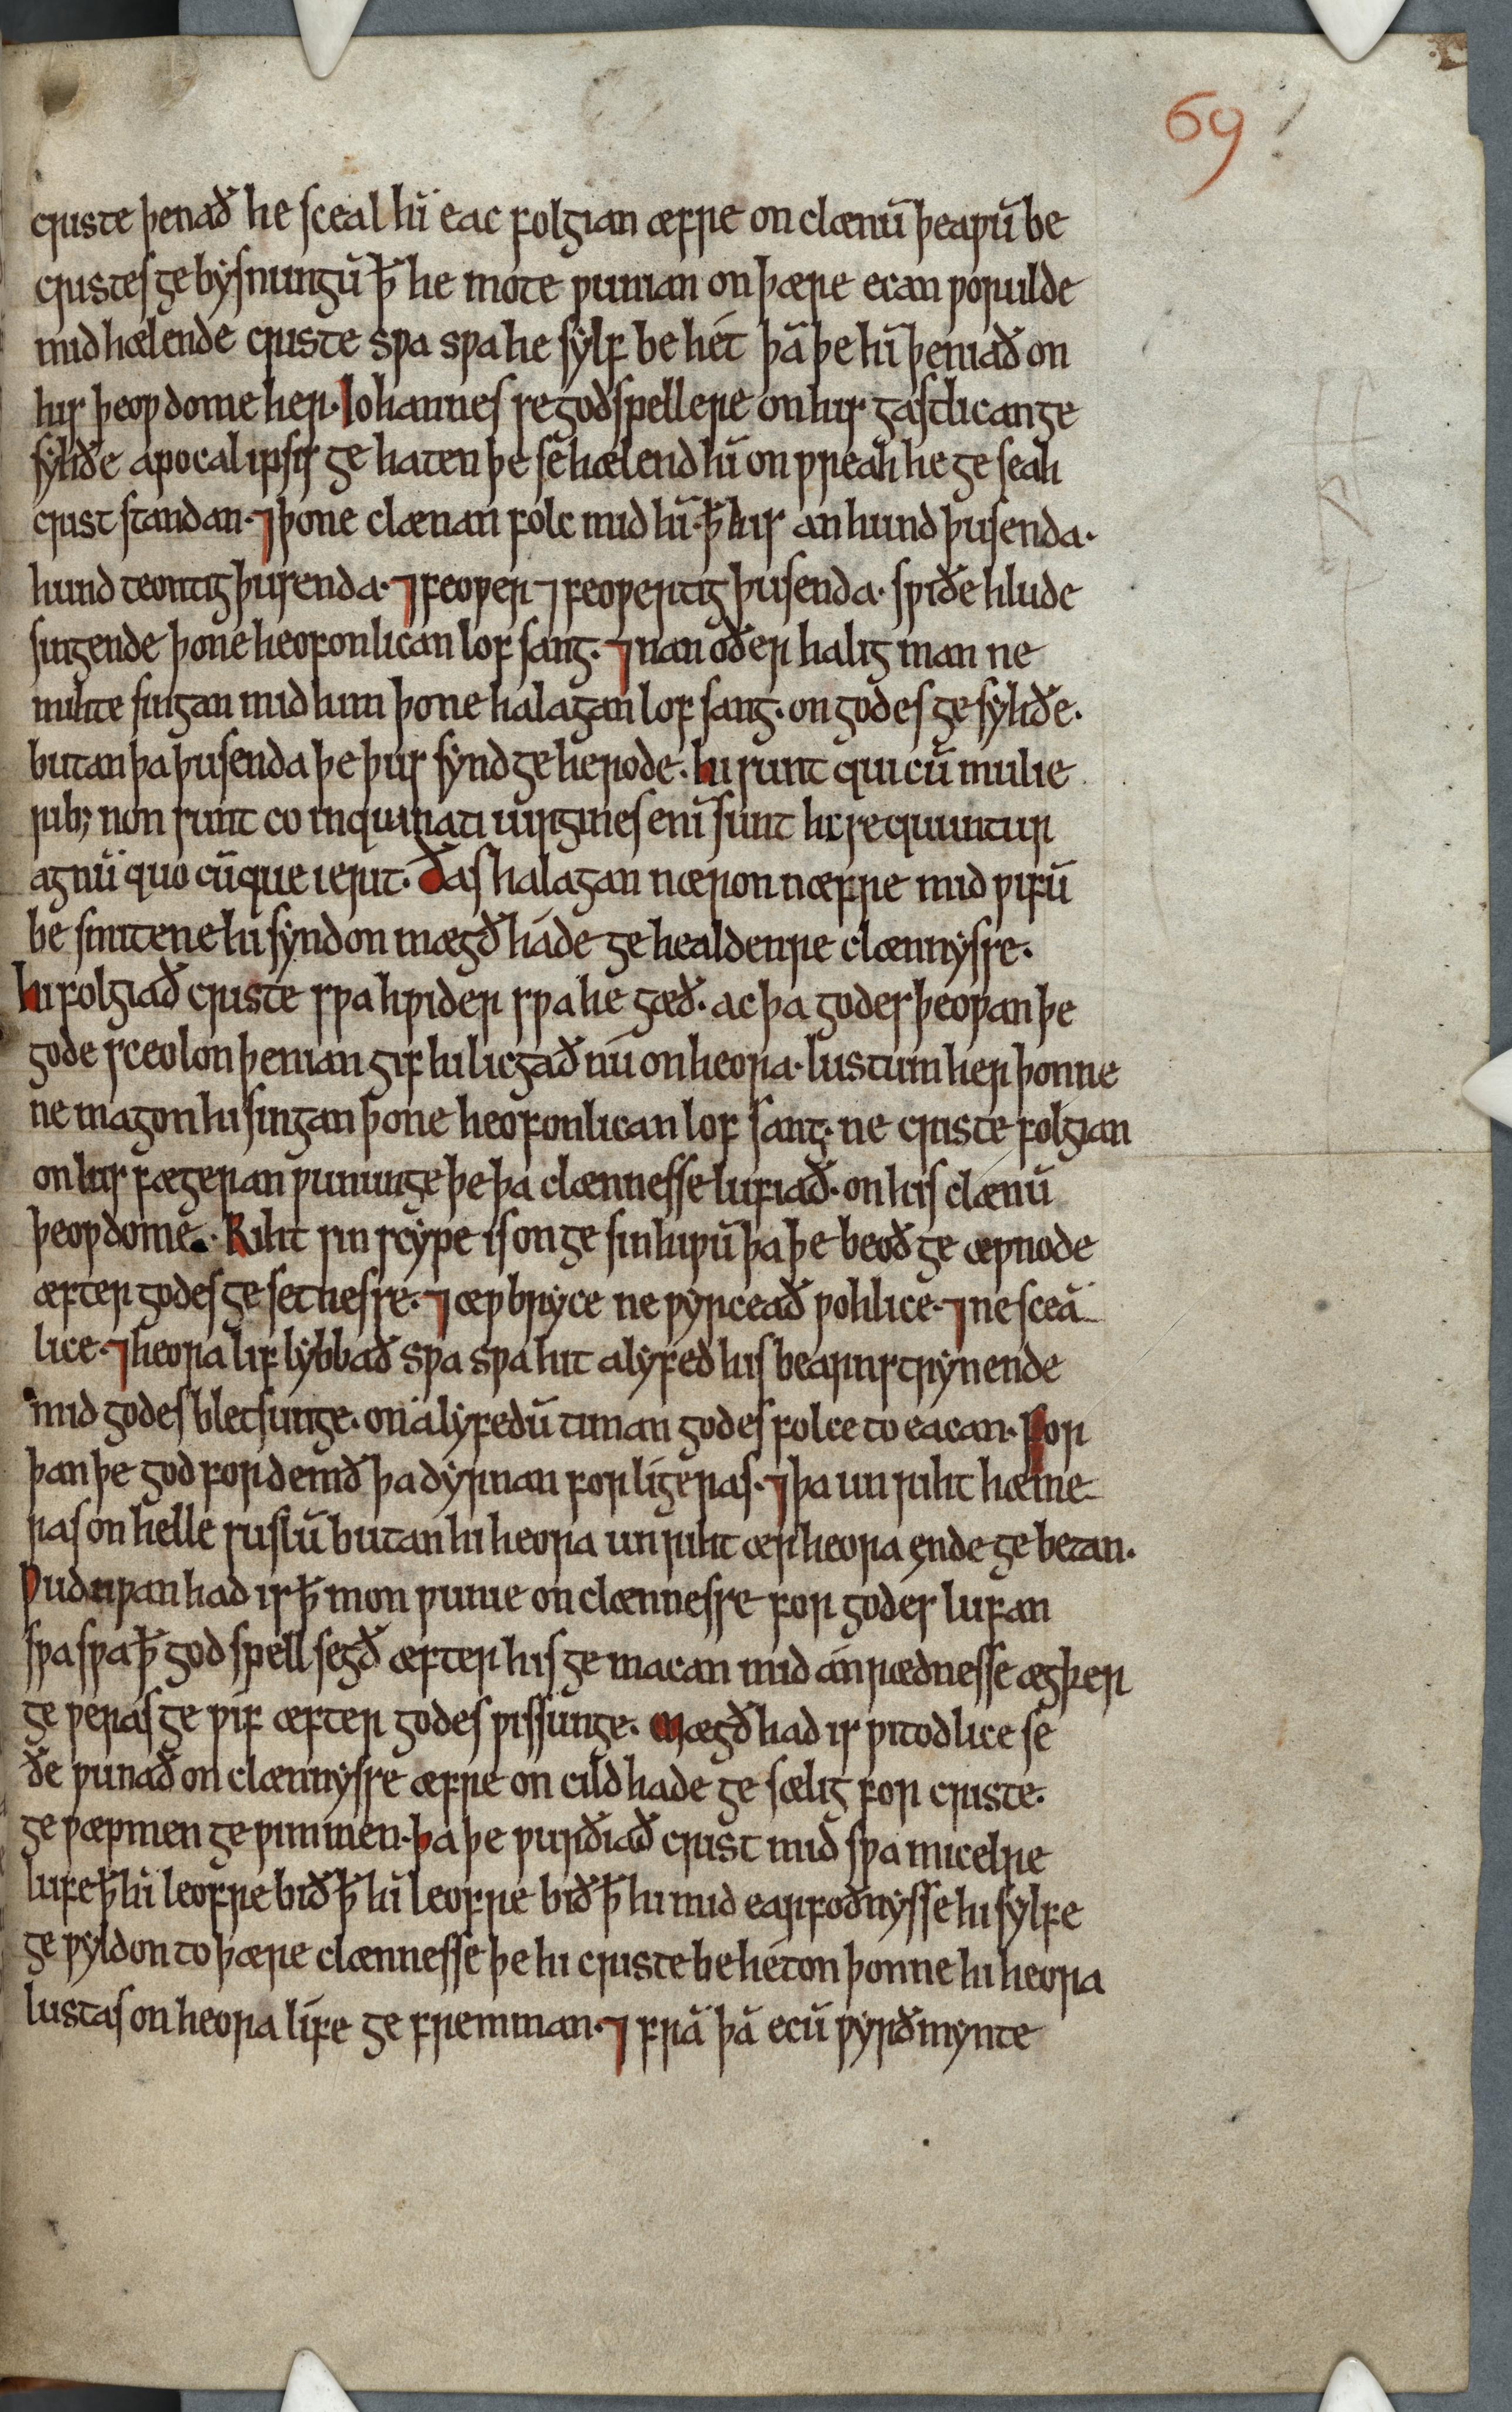 69
criste þenað he sceal hī eac folgian æfre on clænū þeaƿū be
cristes ge bysnungū ꝥ he mote ƿunian on þære ecan ƿorulde
mid hælende criste sƿa sƿa he sylf be hét þā þe hī þeniað on
his þeoƿ dome her. Iohannes se godspellere on his gastlican ge
syhðe apocalipsis ge haten þe se hælend hī on ƿreah he ge seah
crist standan. ⁊ þone clænan folc mid hī. ꝥ his an hund þusenda.
hund teontig þusenda. ⁊ feoƿer ⁊ feoƿertig þusenda. sƿiðe hlude
singende þone heofonlican lof sang. ⁊ nan oðer halig man ne
mihte singan mid him þone halagan lof sang. on godes ge syhðe.
butan þa þusenda þe þus synd ge herode. hi sunt qui cū mulie
rib; non sunt co inquinati uirgines enī sunt hi sequuntur
agnū quo cūque ierit. Ðas halagan næron næfre mid ƿifū
be smitene hi syndon mægð háde ge healdenre clænnysse.
hi folgiað criste sƿa hƿider sƿa he gæð. ac þa godes þeoƿan þe
gode sceolon þenian gif hi licgað nú on heora. lustum her þonne
ne magon hi singan þone heofonlican lof sang. ne criste folgian
on his fægeran ƿununge þe þa clænnesse lufiað. on his clænū
þeoƿdome. Riht sin scype is on ge sinhiƿū þa þe beoð ge æƿnode
æfter godes ge setnesse. ⁊ æƿ bryce ne ƿyrceað ƿohlice. ⁊ ne sceā
lice. ⁊ heora lif lybbað sƿa sƿa hit alyfed his bearnstrynende
mid godes bletsunge. on alyfedū timan godes folce to eacan. For
þan þe god fordemð þa dyrnan forligeras. ⁊ þa unriht hæme
ras on helle suslū butan hi heora unriht ær heora ende ge betan.
Ƿuduƿan had is ꝥ mon ƿunie on clænnesse for godes lufan
sƿa sƿa ꝥ god spell segð æfter his ge macan mid ánrædnesse ægþer
ge ƿeras ge ƿif æfter godes ƿissunge. Mægðhad is ƿitodlice se
ðe ƿunað on clænnysse æfre on cildhade ge sælig for criste.
ge ƿæpmen ge ƿimmen. þa þe ƿurðiað crist mid sƿa micelre
lufe ꝥ hī leofre bið ꝥ hī leofre bið ꝥ hi mid earfoðnysse hi sylfe
ge ƿyldon to þære clænnesse þe hi criste be héton þonne hi heora
lustas on heora lífe ge fremman. ⁊ frā þā ecū ƿyrðmynte